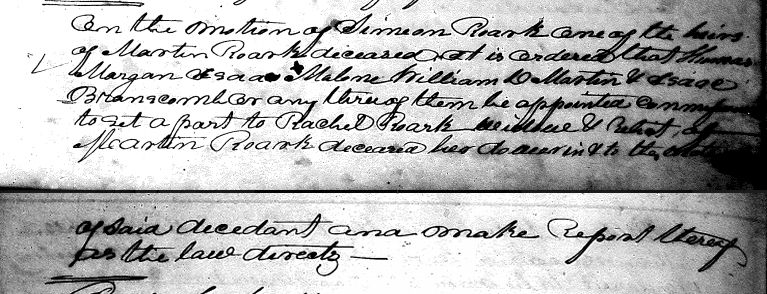 On the motion of Simeon Roark one of the heirs
of Martin Roark deceased it is ordered that Thomas
Morgan Isaac Malone William D Martin & Isaac
Branscomb or any three of them be appointed
to set a part to Rachel Roark widow & Relict of
Martin Roark deceased her dower in & to the
of said decedant and make Report thereof
as the law directs —